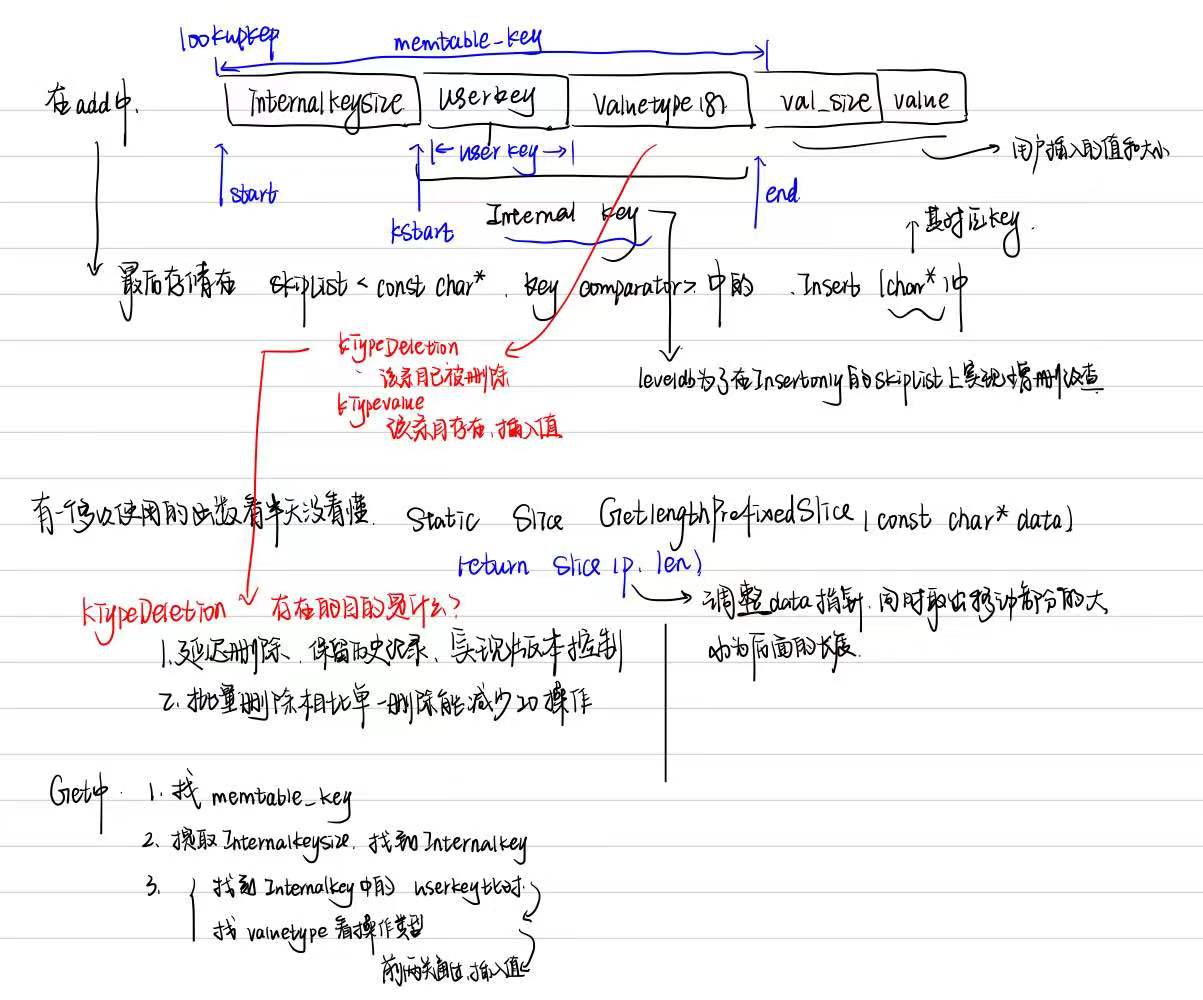 lookupkey
memtable_key
在add中.
Internalkeysize userkey valuetype (8) val_size value
|← userkey →|
用户插入的值和大小
start
kstart
end
Internal key
其对应key.
最后存储在 skiplist < const char*, key comparator> 中的 .Insert (char*)中
kTypeDeletion
该条目已被删除
kTypevalue
该条目存在,插入值
leveldb为了在Insertonly的skiplist上实现增删改查
有一个多次使用的函数看半天没看懂. Static Slice GetlengthPrefixedSlice (const char* data)
return Slice (p, len)
调整data指针,同时取出移动部分的大
小为后面的长度.
kTypeDeletion 存在的目的是什么?
1. 延迟删除、保留历史记录、实现版本控制
2. 批量删除相比单一删除能减少IO操作
Get中. 1. 找 memtable_key
2. 提取Internalkeysize, 找到Internalkey
3. 找到Internalkey中的 userkey比对
找 valuetype 看操作类型
插入值